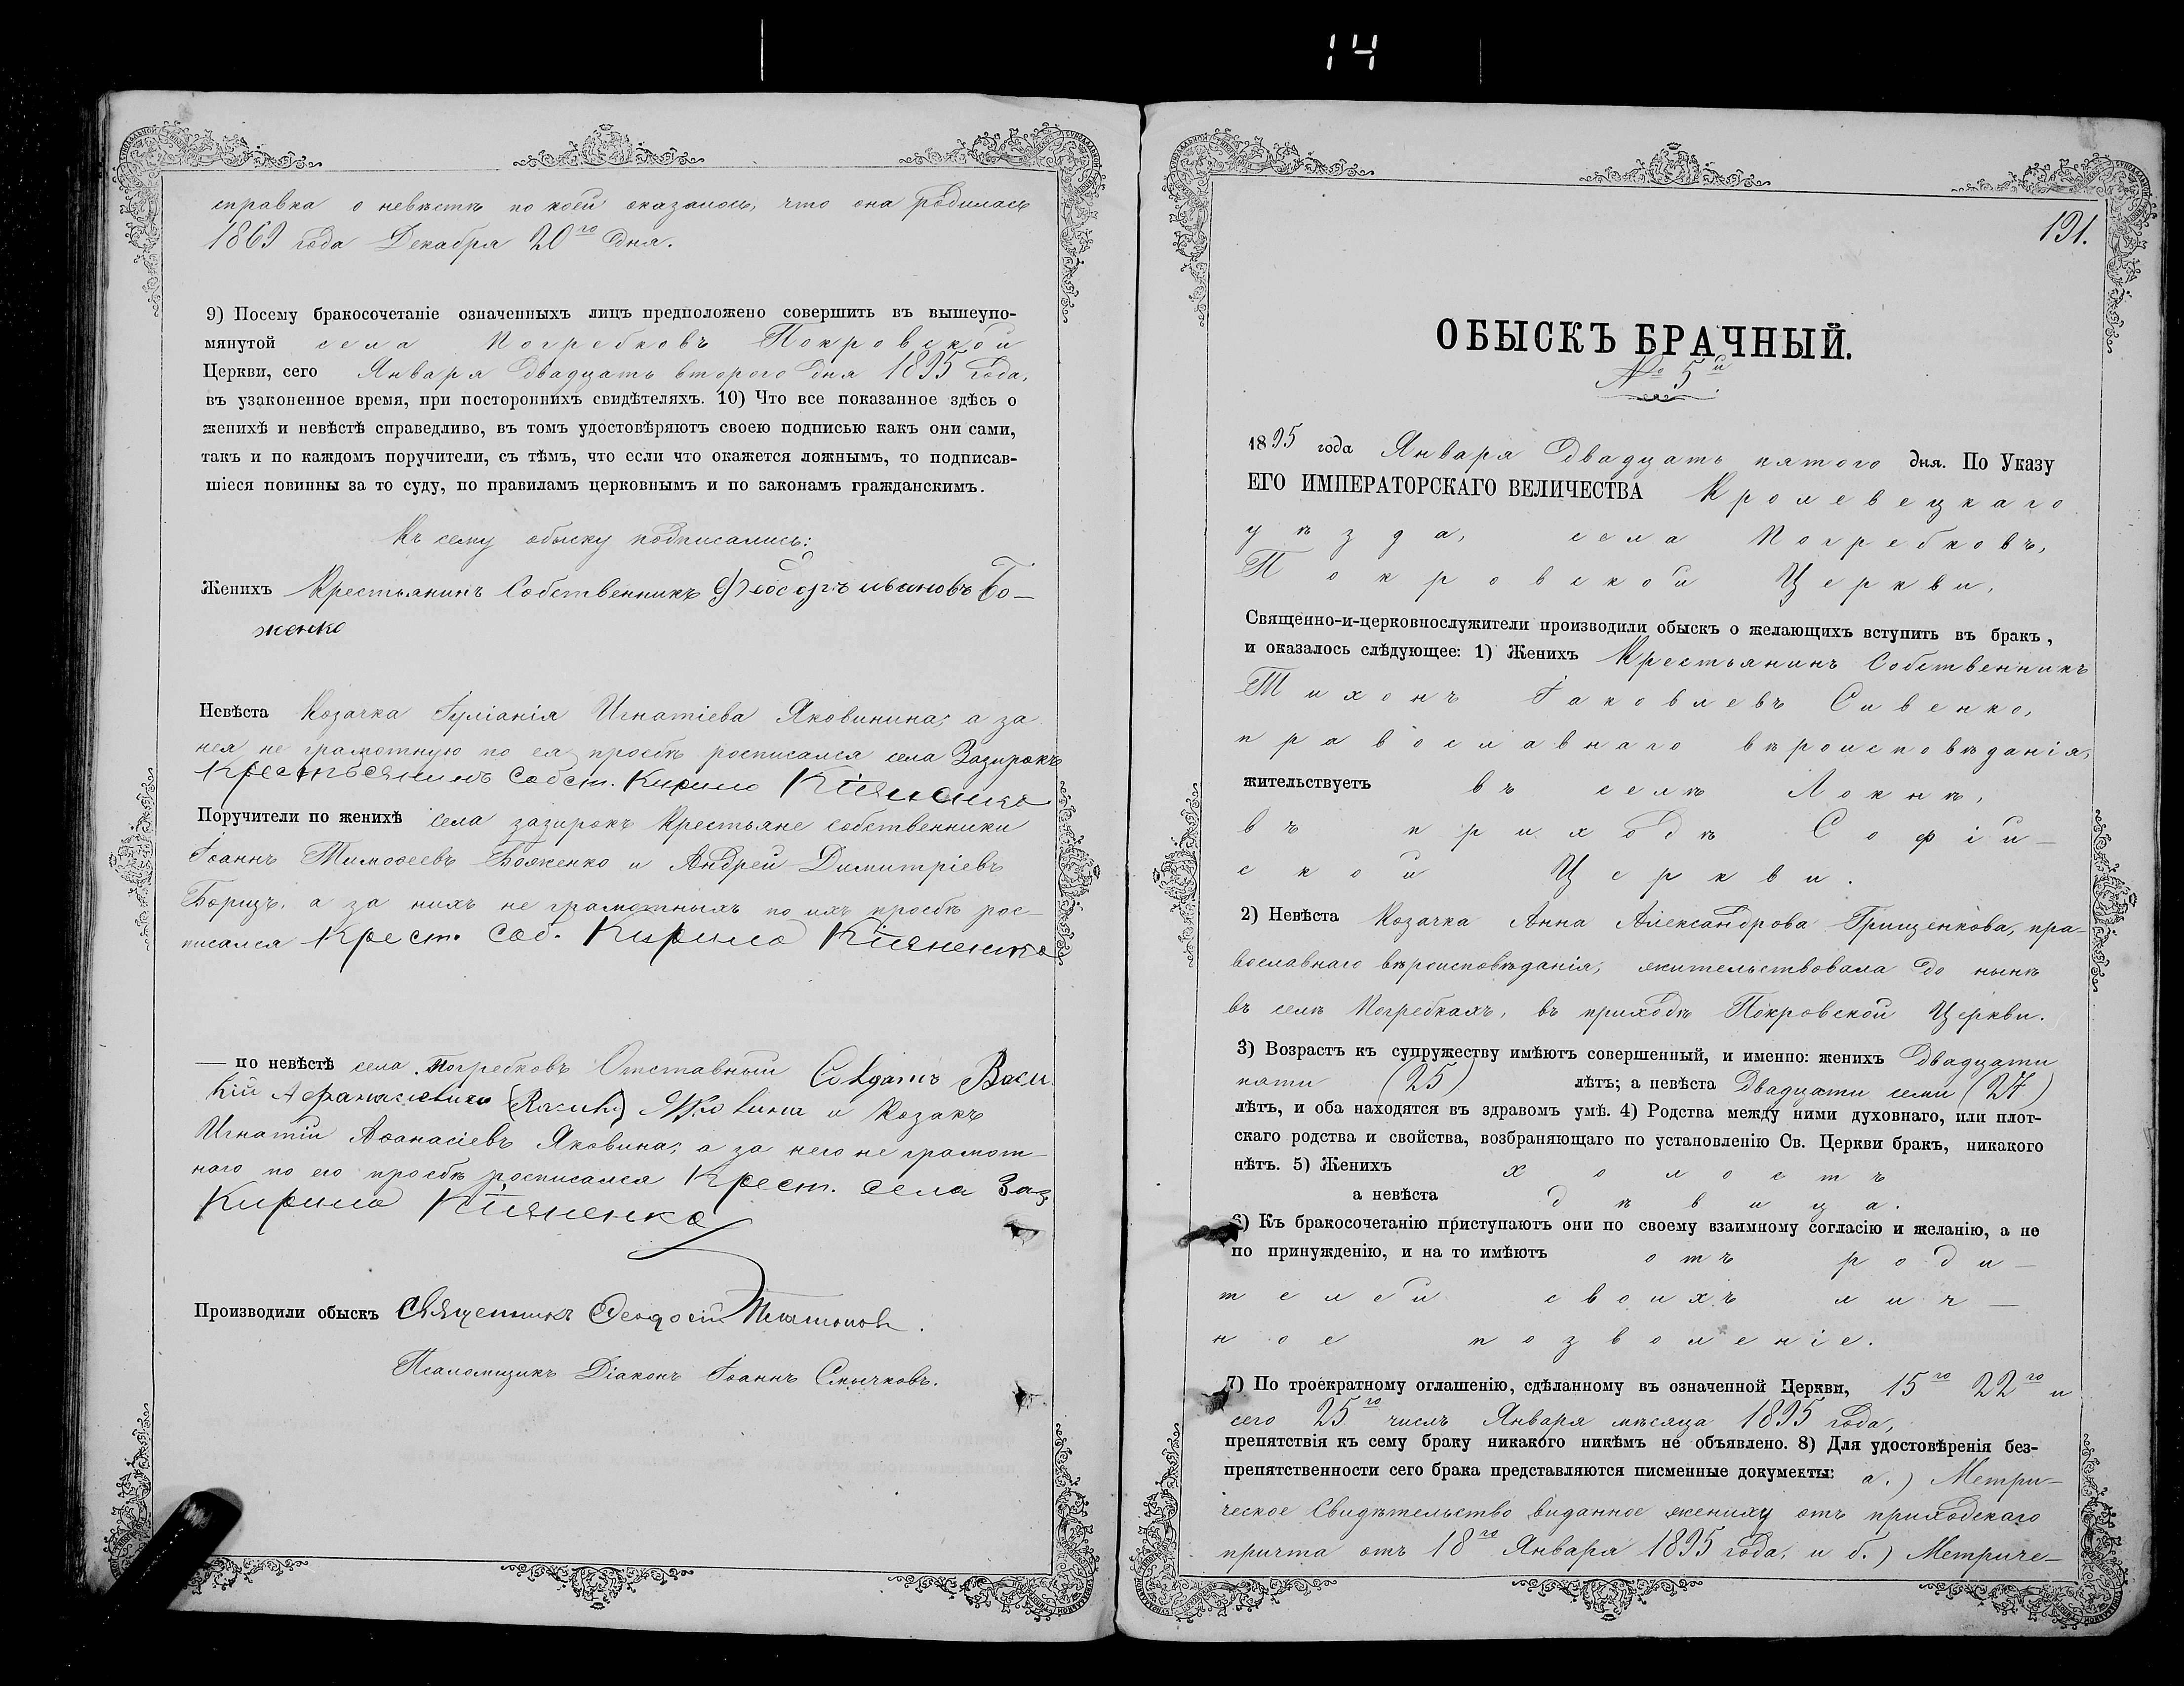 14
справка о невѣстѣ по коей оказалось, что она родилась
1869 года Декабря 20го дня.
9) Посему бракосочетаніе означенныхъ лицъ предположено совершить въ вышеупо-
мянутой села Погребковъ Покровской
Церкви, сего Января двадцать второго дня 1895 года,
въ узаконенное время, при постороннихъ свидѣтеляхъ. 10) Что все показанное здѣсь о
женихѣ и невѣстѣ справедливо, въ томъ удостовѣряютъ своею подписью какъ они сами,
такъ и по каждомъ поручители, съ тѣмъ, что если что окажется ложнымъ, то подписав-
шіеся повинны за то суду, по правиламъ церковнымъ и по законамъ гражданскимъ.
Къ сему обыску подписались:
Женихъ Крестьянинъ Собственникъ Феодоръ ивановъ Бо-
женко
Невѣста Козачка Іуліанія Игнатіева Яковинина; а за
нея не грамотную по ея просьбѣ росписался села Зазирокъ
Крестьсянинъ Собст. Кирило Кіяненко
Поручители по женихѣ села зазирокъ Крестьяне собственники
Іоаннъ Тимоѳеевъ Боженко и Андрей Димитріевъ
Борщъ, а за нихъ не грамотныхъ по ихъ просьбѣ рос-
писался Крест. Соб. Кирило Кіяненко
— по невѣстѣ села Погребковъ Отставный Солдатъ Васи
лій Афанасіевичъ Яковина и Козакъ
Игнатій Аѳанасіевъ Яковина; а за него не грамот-
наго по его просьбѣ росписался Крест. села Заз
Кирило Кіяненко
Производили обыскъ Священникъ Феодосій Платоновъ.
Псаломщикъ Діаконъ Іоаннъ Смычковъ.
191.
ОБЫСКЪ БРАЧНЫЙ.
№ 5й
1895 года Января двадцать пятого дня. По Указу
ЕГО ИМПЕРАТОРСКАГО ВЕЛИЧЕСТВА Кролевецкаго
уѣзда, села Погребковъ,
Покровской Церкви,
Священно-и-церковнослужители производили обыскъ о желающихъ вступить въ бракъ,
и оказалось слѣдующее: 1) Женихъ Крестьянинъ Собственникъ
Тихонъ Іаковлевъ Сивенко,
православнаго вѣроисповѣданія,
жительствуетъ въ селѣ Локнѣ,
въ приходѣ Софій-
ской Церкви.
2) Невѣста Козачка Анна Александрова Грищенкова, пра-
вославнаго вѣроисповѣданія, жительствовала до нынѣ
въ селѣ Погребкахъ, въ приходѣ Покровской Церкви.
3) Возрастъ къ супружеству имѣютъ совершенный, и именно: женихъ двадцати
пяти (25) лѣтъ; а невѣста двадцати семи (27)
лѣтъ, и оба находятся въ здравомъ умѣ. 4) Родства между ними духовнаго, или плот-
скаго родства и свойства, возбраняющаго по установленію Св. Церкви бракъ, никакого
нѣтъ. 5) Женихъ холостъ
а невѣста дѣвица.
6) Къ бракосочетанію приступаютъ они по своему взаимному согласію и желанію, а не
по принужденію, и на то имѣютъ отъ роди-
телей своихъ лич-
ное позволеніе.
7) По троекратному оглашенію, сдѣланному въ означенной Церкви, 15го 22го и
сего 25го числъ Января мѣсяца 1895 года,
препятствія къ сему браку никакого никѣмъ не объявлено. 8) Для удостовѣренія без-
препятственности сего брака представляются писменные документы: а.) Метри-
ческое Свидѣтельство виданное жениху отъ приходскаго
причта отъ 18го Января 1895 года, и б.) Метриче-